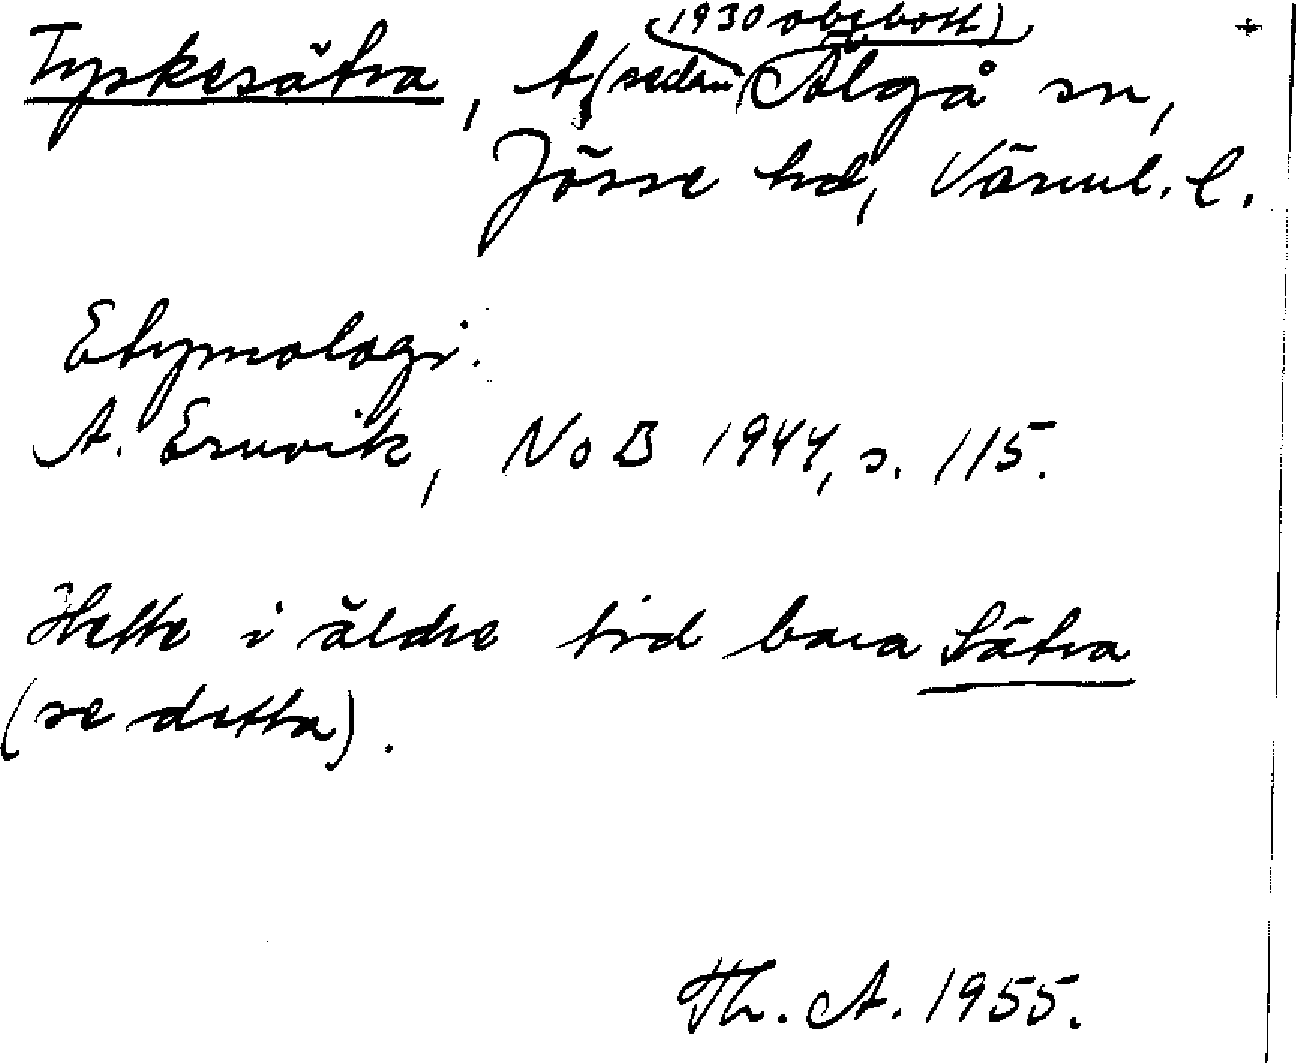 1930 obebott) +
Tyskesätra, t (sedan Älgå sn,
Jösse hd, Värml. l.
Etymologi.
A. Ernvik, NoB 1944, s. 115.
Hette i äldre tid bara Sätra
(se detta).
Th. A. 1955.